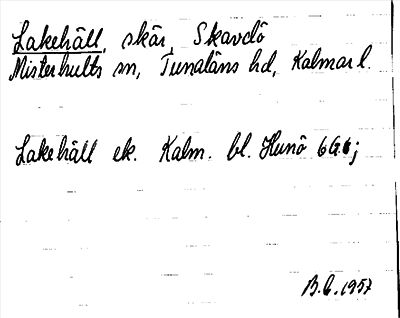 Lakehäll, skär, Skavdö
Misterhults sn, Tunaläns hd, Kalmar l.
Lakehäll ek. Kalm. bl. Hunö 6G6;
B.G. 1957